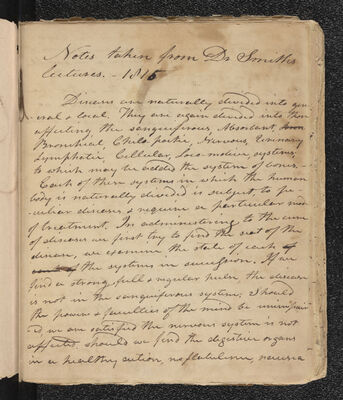 Notes taken from Dr Smiths
lectures. - 1815
Diseases are naturally divided into gen-
eral & local. They are again divided into those
affecting the sanguiferous, Absorbent,
Bronchial, Chilo poetic, Nervous, Urinary
Lymphatic, Cellular, Loco motive systems,
to which may be added the system of bones.
Each of these systems in which the human
body is naturally divided is subject to pe-
culiar diseases & require a particular mode
of treatment. In administering to the cure
of diseases we first try to find the seat of the
disease, we examine the state of each of
of the systems in succession. If we
find a strong full & regular pulse the disease
is not in the sanguiferous system; Should
the powers & faculties of the mind be unimpair
ed we are satisfied the nervous system is not
affected, should we find the digestive organs
in a healthy action, no flatulence, nausea